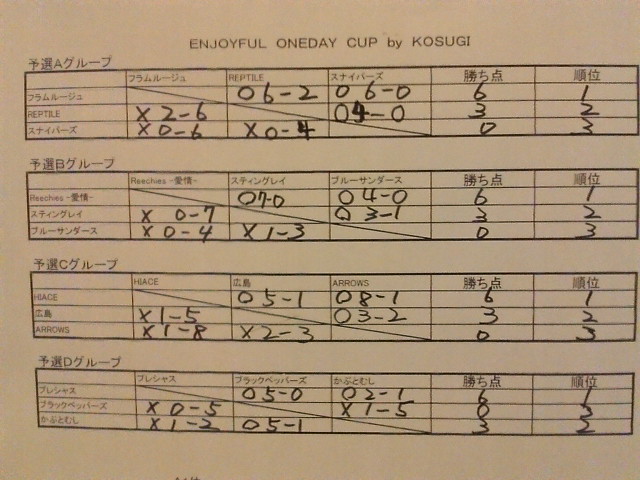 ENJOYFUL ONEDAY CUP by KOSUGI
予選Aグループ
フラムルージュ REPTILE スナイパーズ 勝ち点 順位
フラムルージュ O 6-2 O 6-0 6 1
REPTILE X 2-6 O 4-0 3 2
スナイパーズ X 0-6 X 0-4 0 3
予選Bグループ
Reechies -愛情- スティングレイ ブルーサンダース 勝ち点 順位
Reechies -愛情- O 7-0 O 4-0 6 1
スティングレイ X 0-7 O 3-1 3 2
ブルーサンダース X 0-4 X 1-3 0 3
予選Cグループ
HIACE 広島 ARROWS 勝ち点 順位
HIACE O 5-1 O 8-1 6 1
広島 X 1-5 O 3-2 3 2
ARROWS X 1-8 X 2-3 0 3
予選Dグループ
プレシャス ブラックペッパーズ かぶとむし 勝ち点 順位
プレシャス O 5-0 O 2-1 6 1
ブラックペッパーズ X 0-5 X 1-5 0 3
かぶとむし X 1-2 O 5-1 3 2